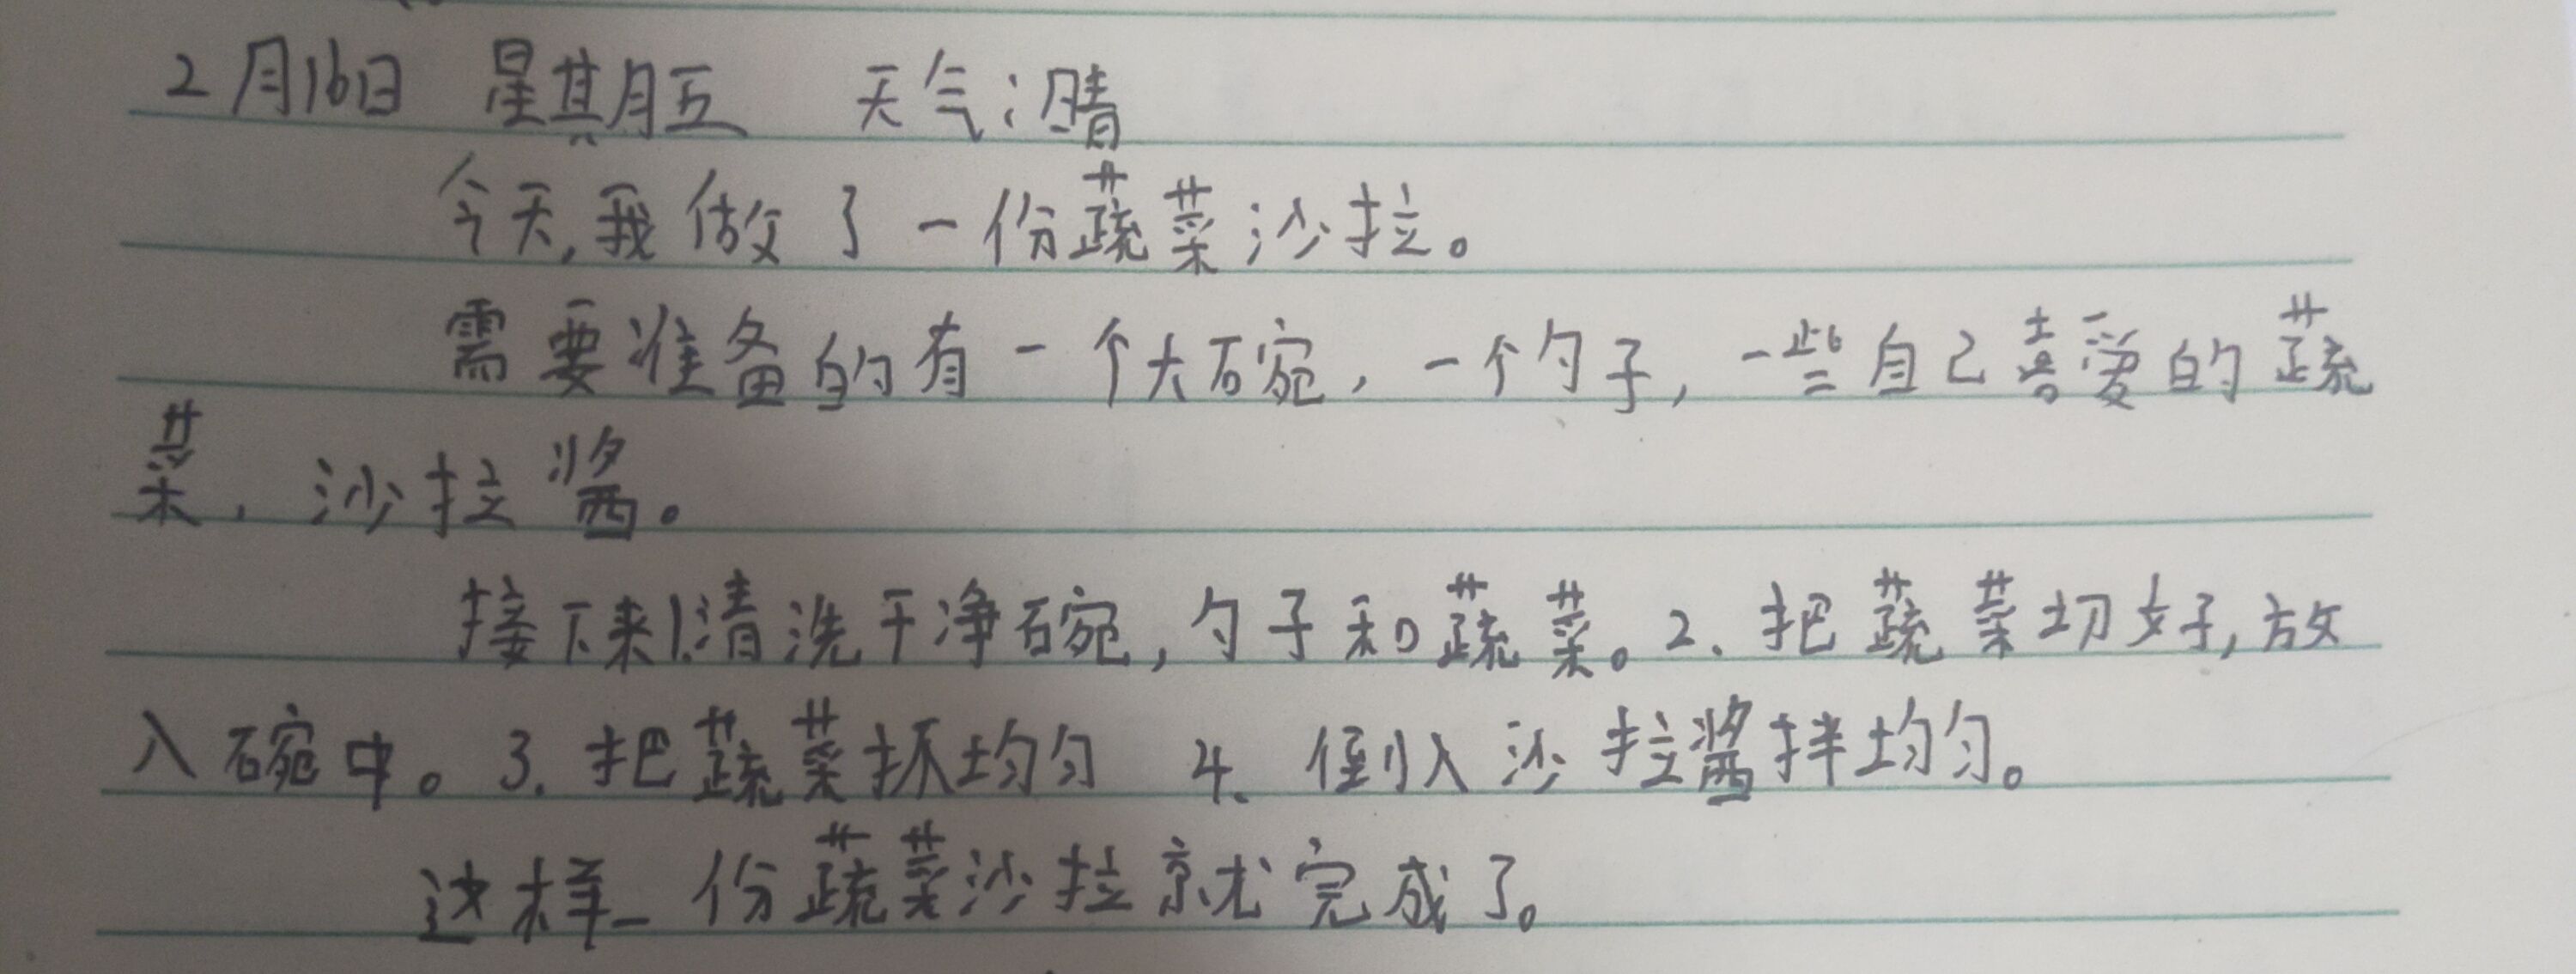 2月16日 星期五 天气:晴
今天,我做了一份蔬菜沙拉。
需要准备的有一个大碗,一个勺子,一些自己喜爱的蔬
菜,沙拉酱。
接下来1.清洗干净碗,勺子和蔬菜。2.把蔬菜切好,放
入碗中。3.把蔬菜抔均匀 4.倒入沙拉酱拌均匀。
这样一份蔬菜沙拉就完成了。